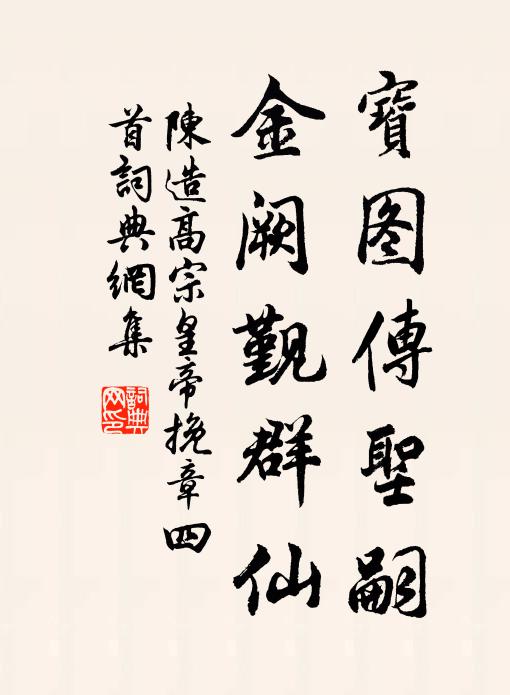 寶图傳聖嗣
金阙觐群仙
陳造高宗皇帝挽章四
首詞典網集
詞典
网印